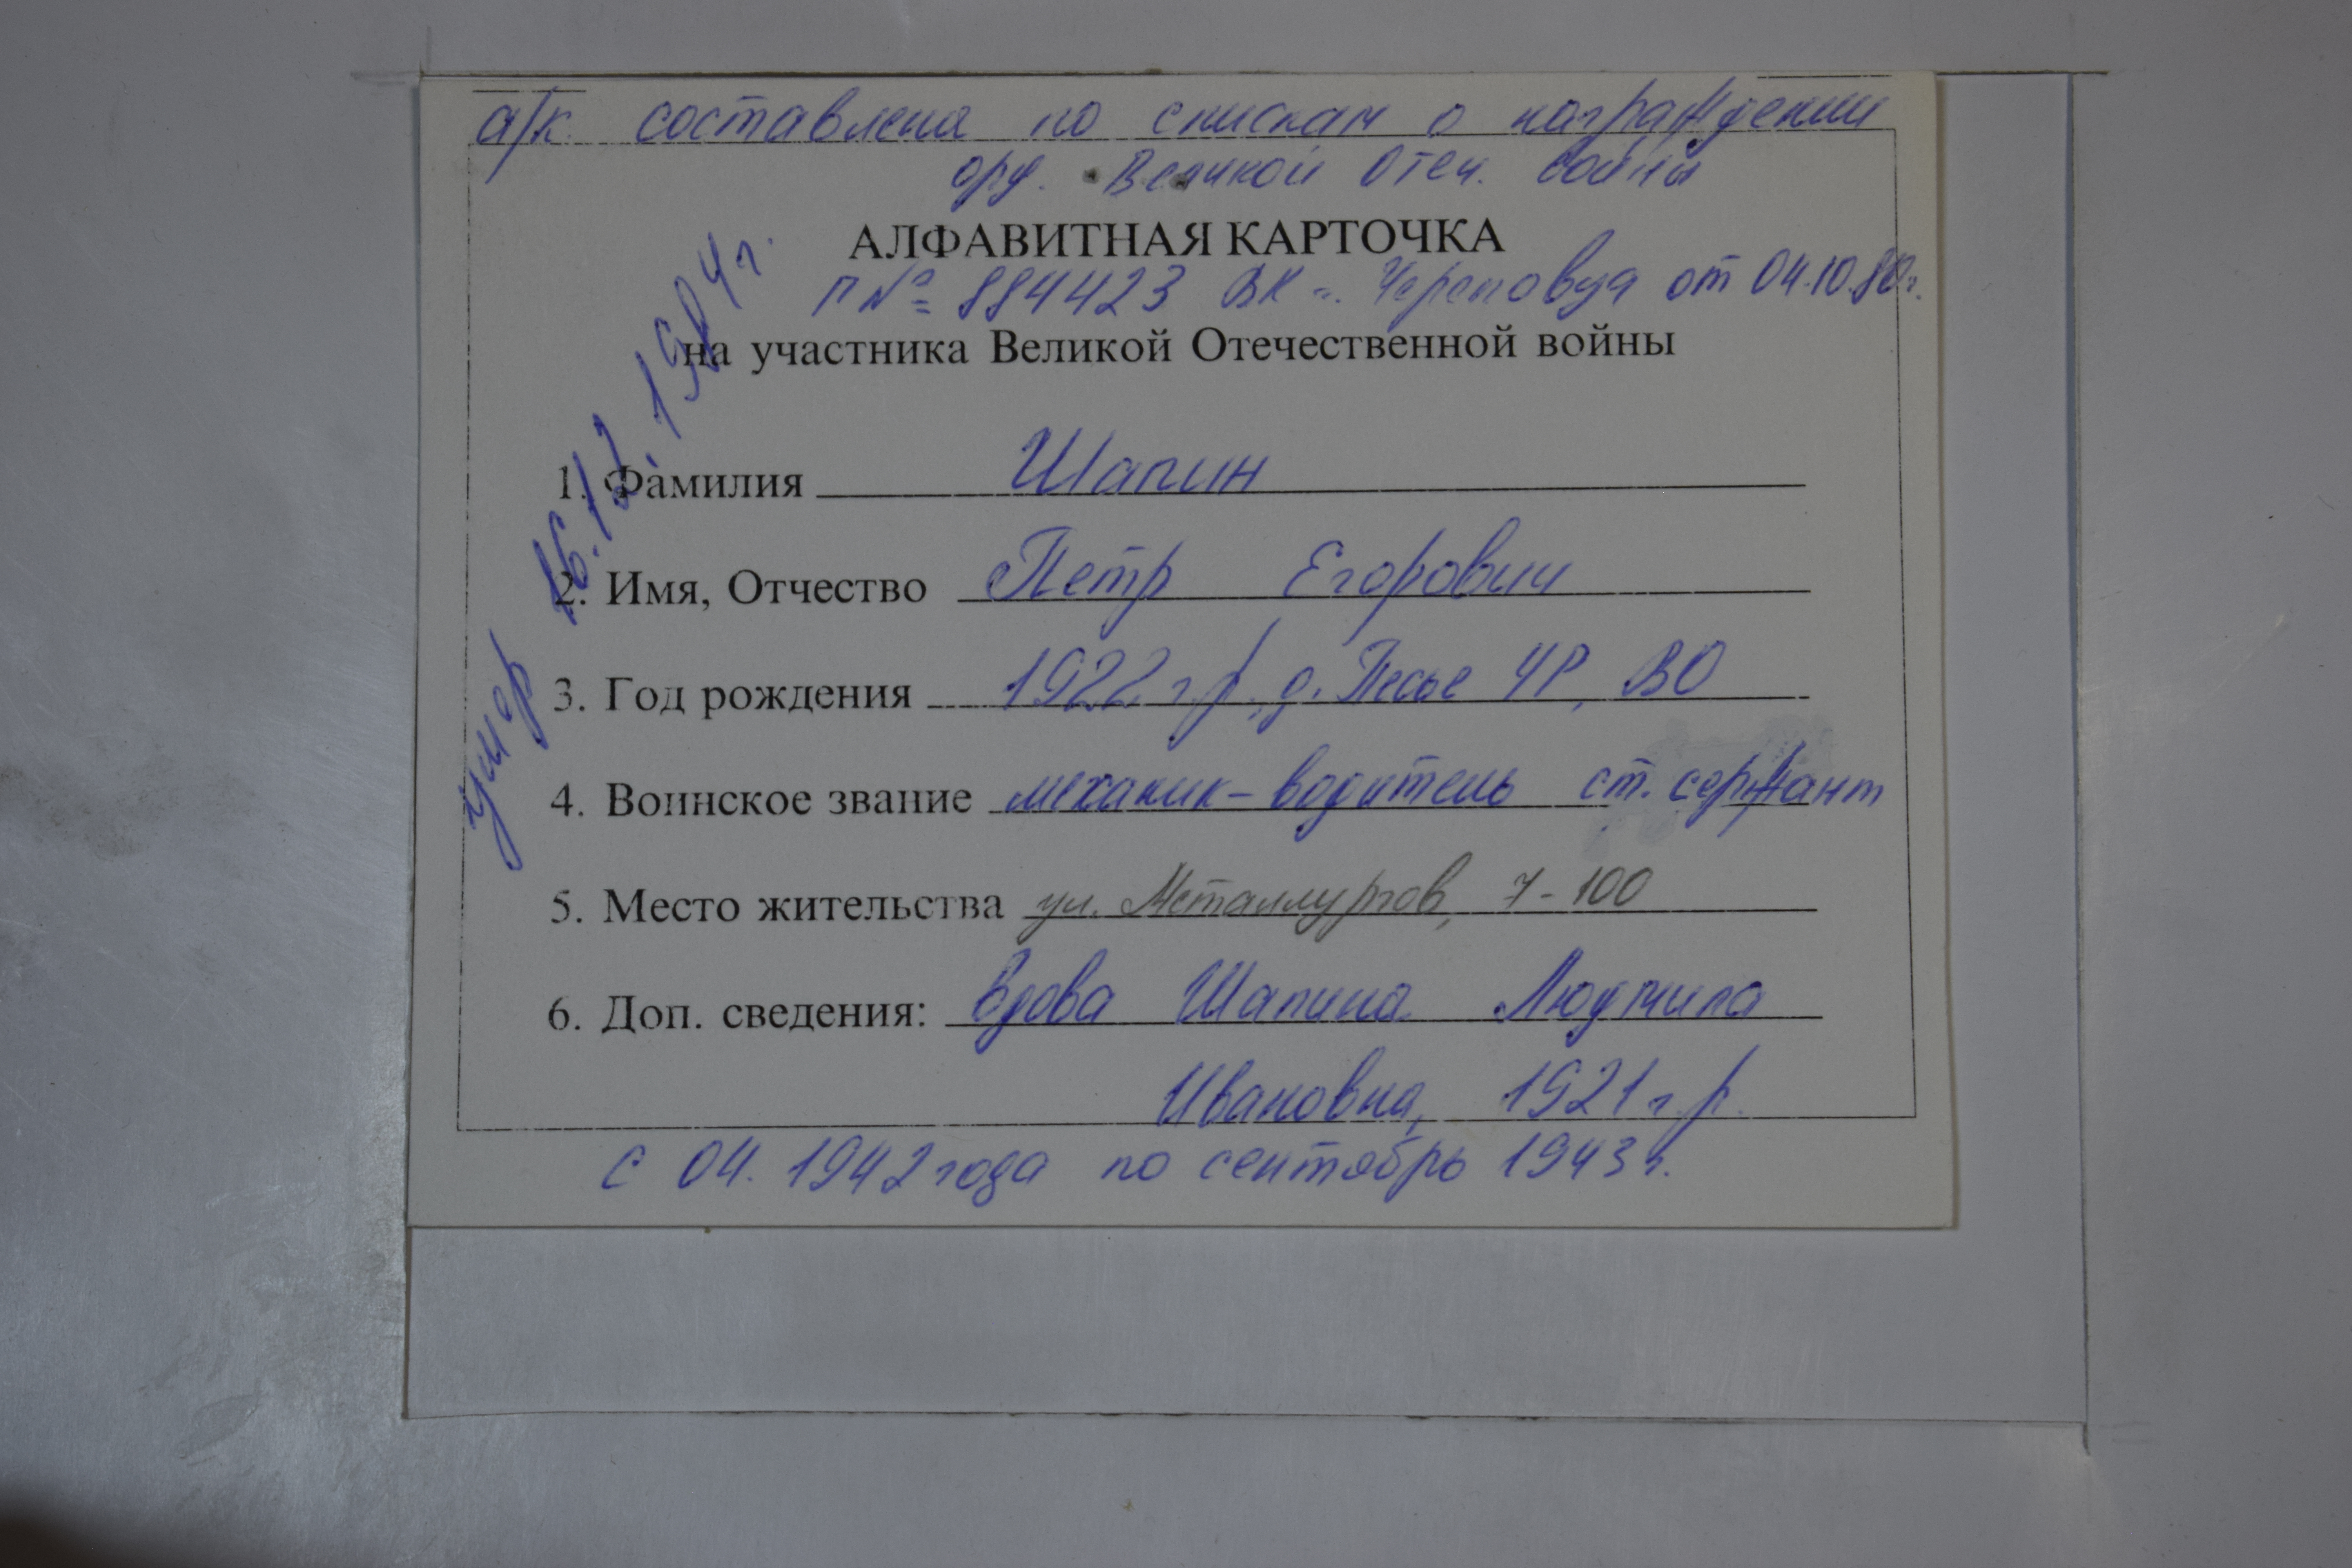 а/к составлена по спискам о награждении
орд. Великой Отеч. войны
АЛФАВИТНАЯ КАРТОЧКА
п № 884423 ВК г. Череповца от 04.10.80г.
на участника Великой Отечественной войны
умер 16.12.1984г.
1. Фамилия Шапин
2. Имя, Отчество Петр Егорович
3. Год рождения 1922 г.р., д. Песье ЧР, ВО
4. Воинское звание механик-водитель ст. сержант
5. Место жительства ул. Металлургов, 7-100
6. Доп. сведения: вдова Шапина Людмила
Ивановна, 1921 г.р.
с 04. 1942 года по сентябрь 1943 г.